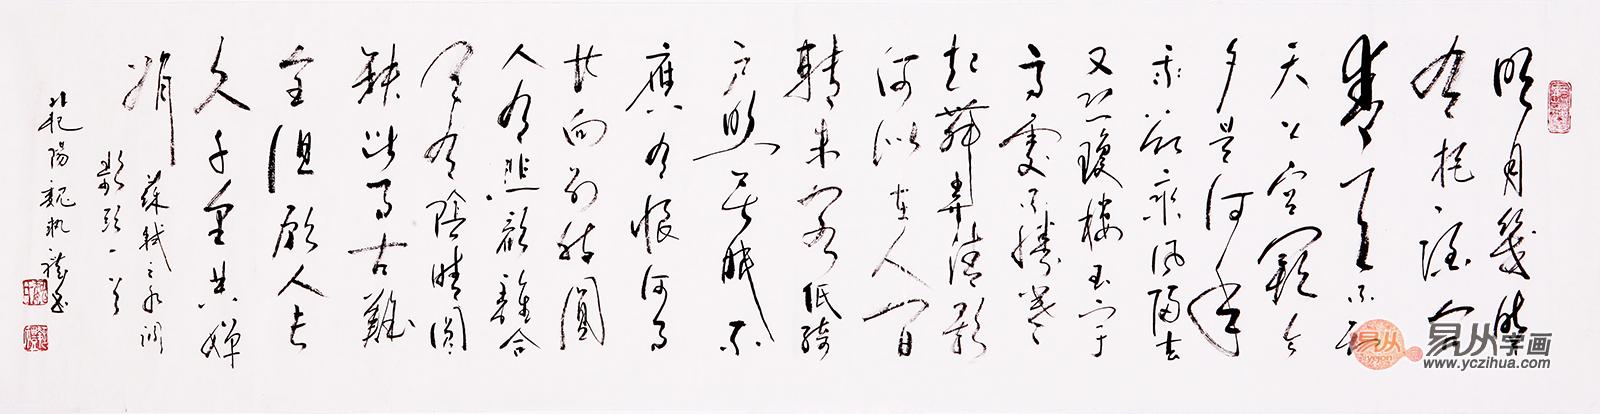 明月幾時
有把酒問
青天不知
天上宮闕今
夕是何年
我欲乘風歸去
又恐瓊樓玉宇
高處不勝寒
起舞弄清影
何似在人間
轉朱閣低綺
户照無眠不
應有恨何事
长向別時圓
人有悲歡離合
月有陰晴圓
缺此事古難
全但願人長
久千里共嬋
娟
蘇軾之水調
歌頭一首
陽
易从
易从字画
www.yczihua.com